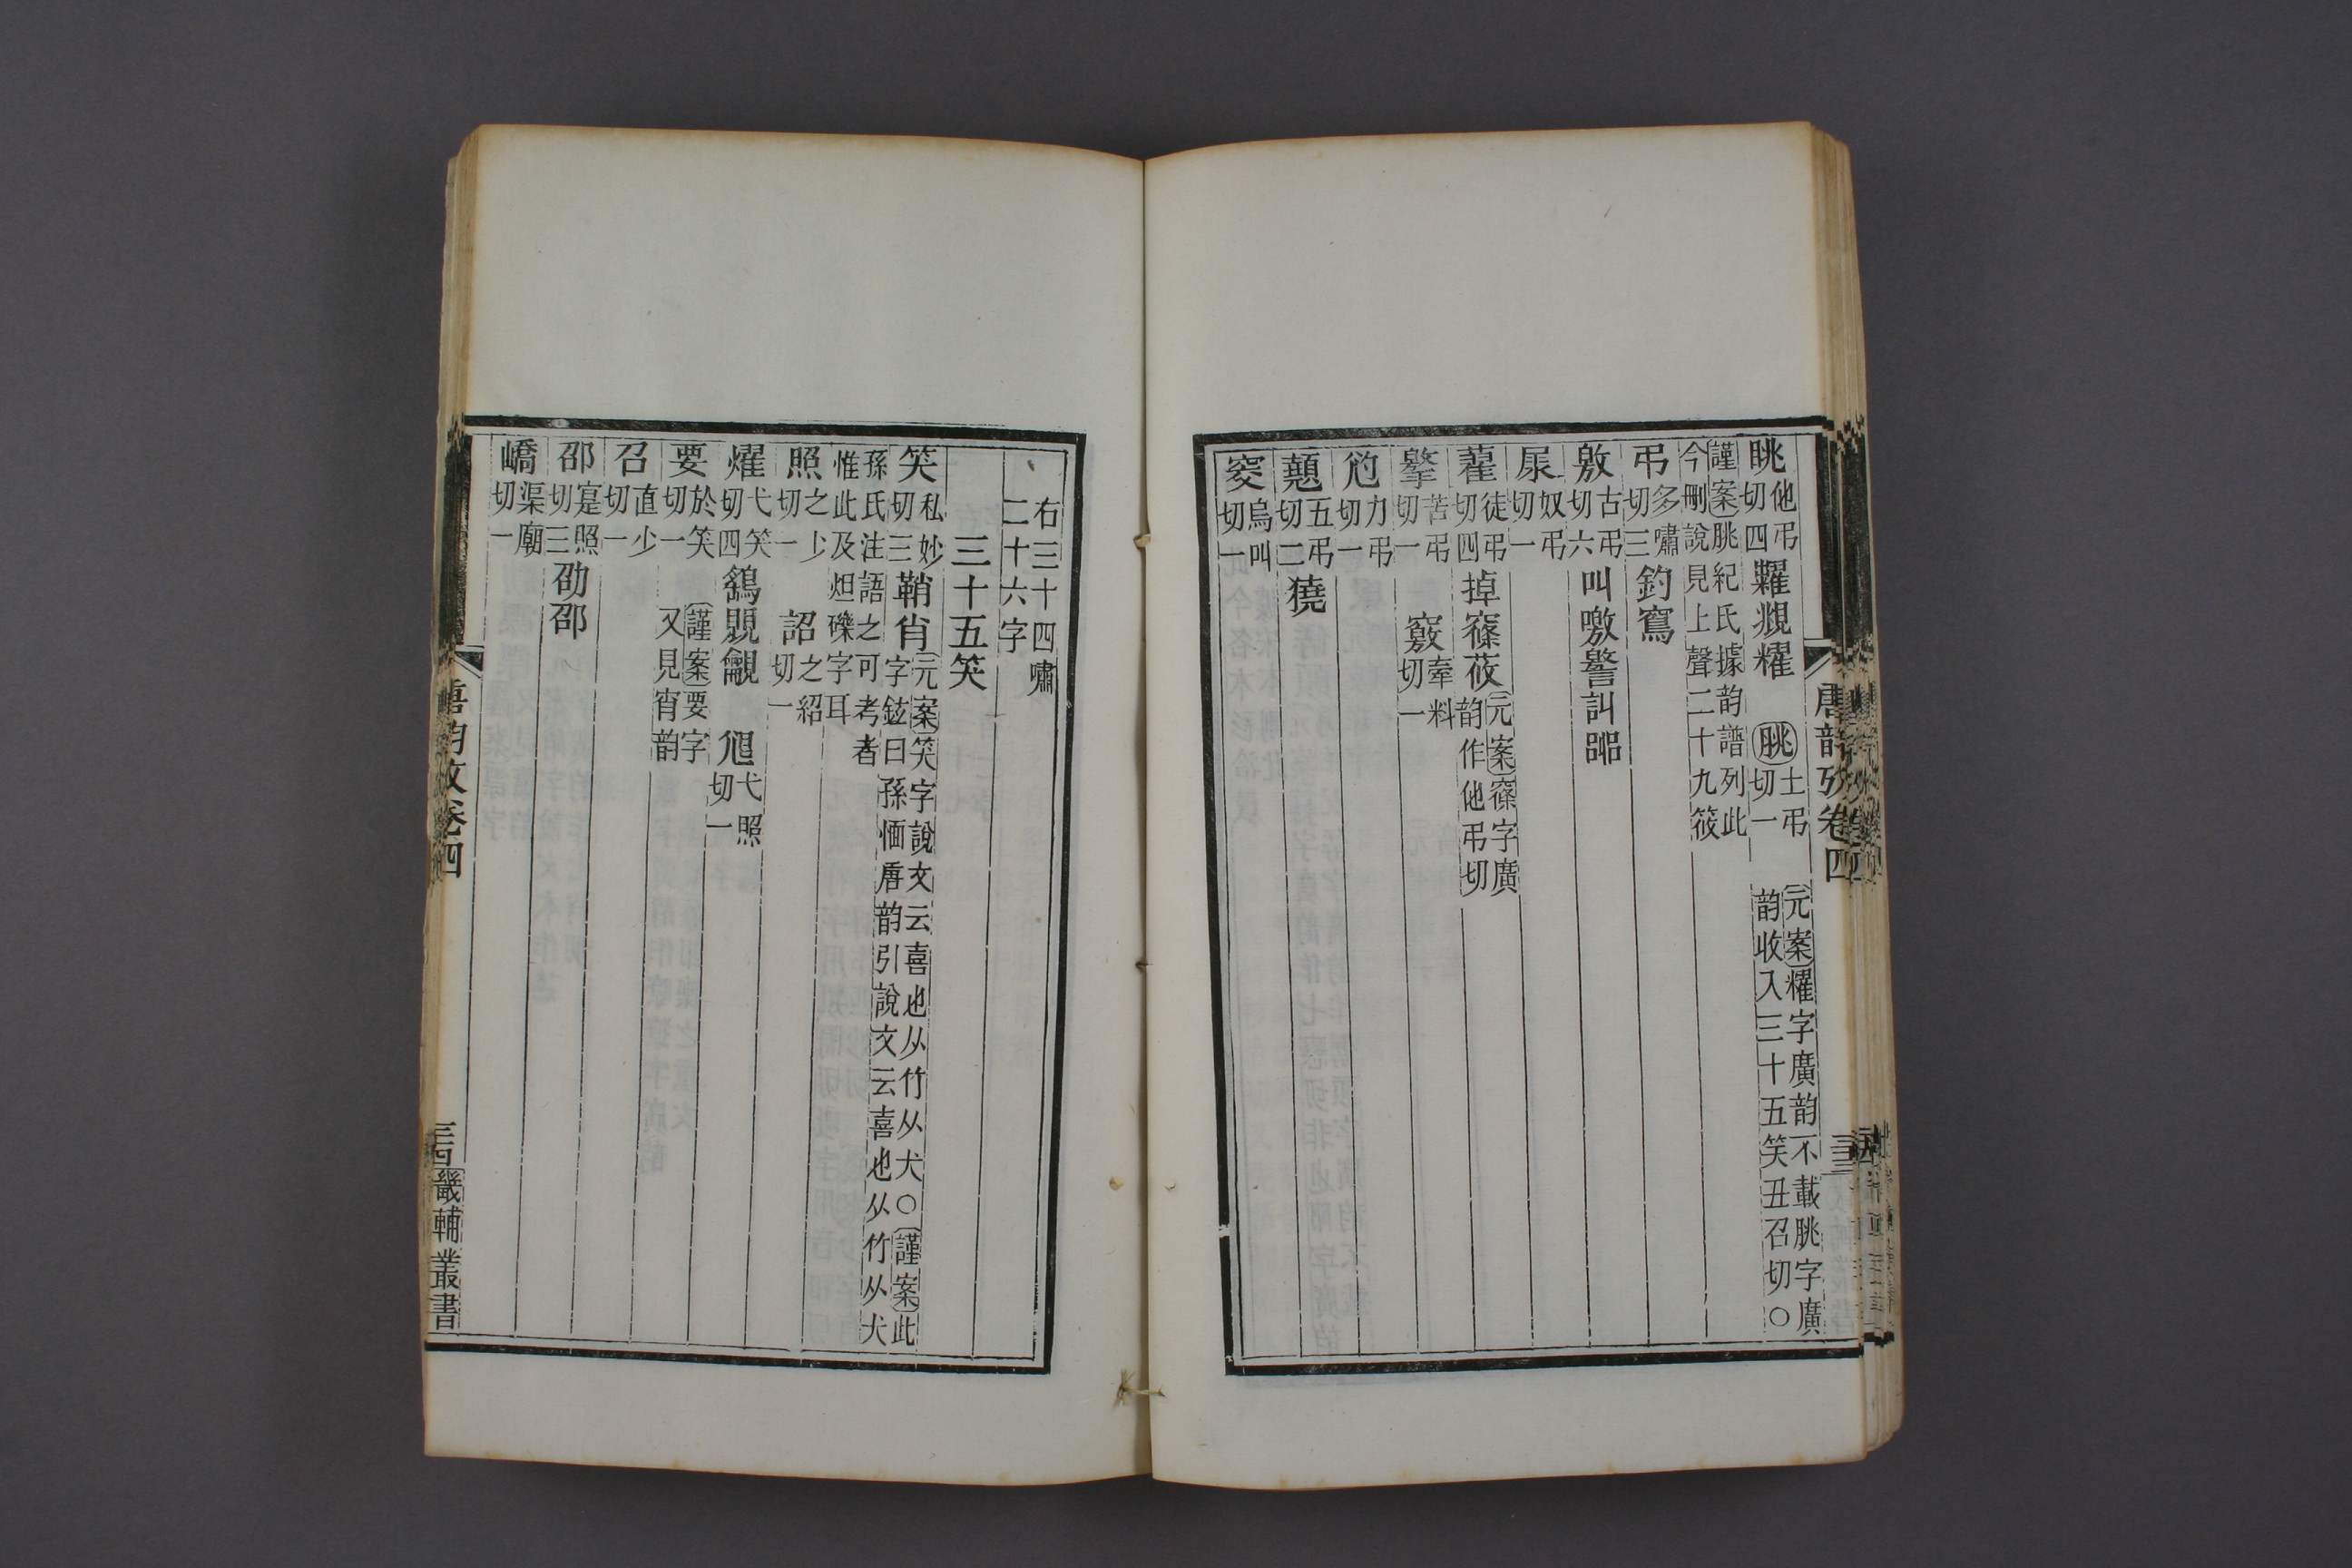 唐韵攷卷四
三十三
眺他弔切四糶覜糶 朓土弔切一 元案糶字廣韵不載朓字廣韵收入三十五笑丑召切○
謹案朓紀氏據韵譜列此今刪說見上聲二十九筱
弔多嘯切三釣窵
敫古弔切六叫噭警訆嘂
㞙奴弔切一
藋徒弔切四掉窱莜元案窱字廣韵作他弔切
擎苦弔切一 竅牽料切一
尥力弔切一
顤五弔切二獟
窔烏叫切一
右三十四嘯二十六字
三十五笑
笑私妙切三鞘肖元案笑字說文云喜也从竹从犬○謹案此字鉉曰孫愐唐韵引說文云喜也从竹从犬
孫氏注語之可考者惟此及炟礫字耳
照之少切一 詔之紹切一
燿弋笑切四鷂覞覦 𡯱弋照切一
要於笑切一 謹案要字又見宵韵
召直少切一
邵寔照切三劭卲
嶠渠廟切一
唐韵攷卷四
三十四
畿輔叢書